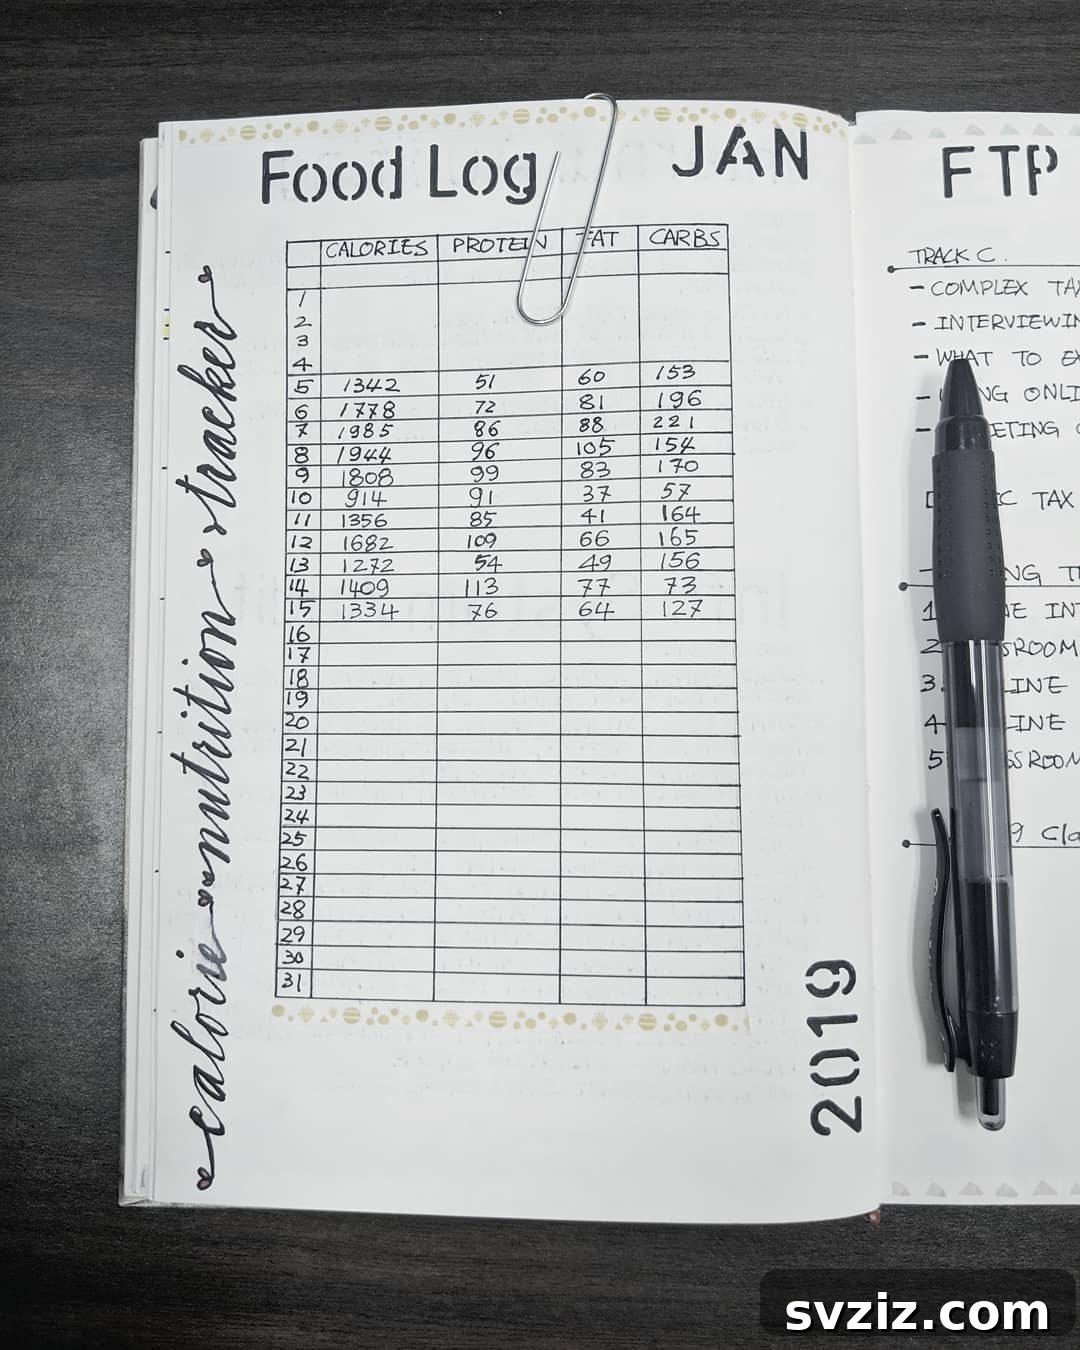 Food Log
JAN
CALORIES PROTEIN FAT CARBS
1
2
3
4
5 1342 51 60 153
6 1778 72 81 196
7 1985 86 88 221
8 1944 96 105 154
9 1808 99 83 170
10 914 91 37 57
11 1356 85 41 164
12 1682 109 66 165
13 1272 54 49 156
14 1409 113 77 73
15 1334 76 64 127
16
17
18
19
20
21
22
23
24
25
26
27
28
29
30
31
calorie nutrition tracker
2019
FTP
TRACK C.
- COMPLEX TAX
- INTERVIEWIN
- WHAT TO EX
- NG ONLI
- ETING
IC TAX
NG T
1 E INT
2 SROOM
3. LINE
4 LINE
5 SSROOM
9 Cla
svziz.com